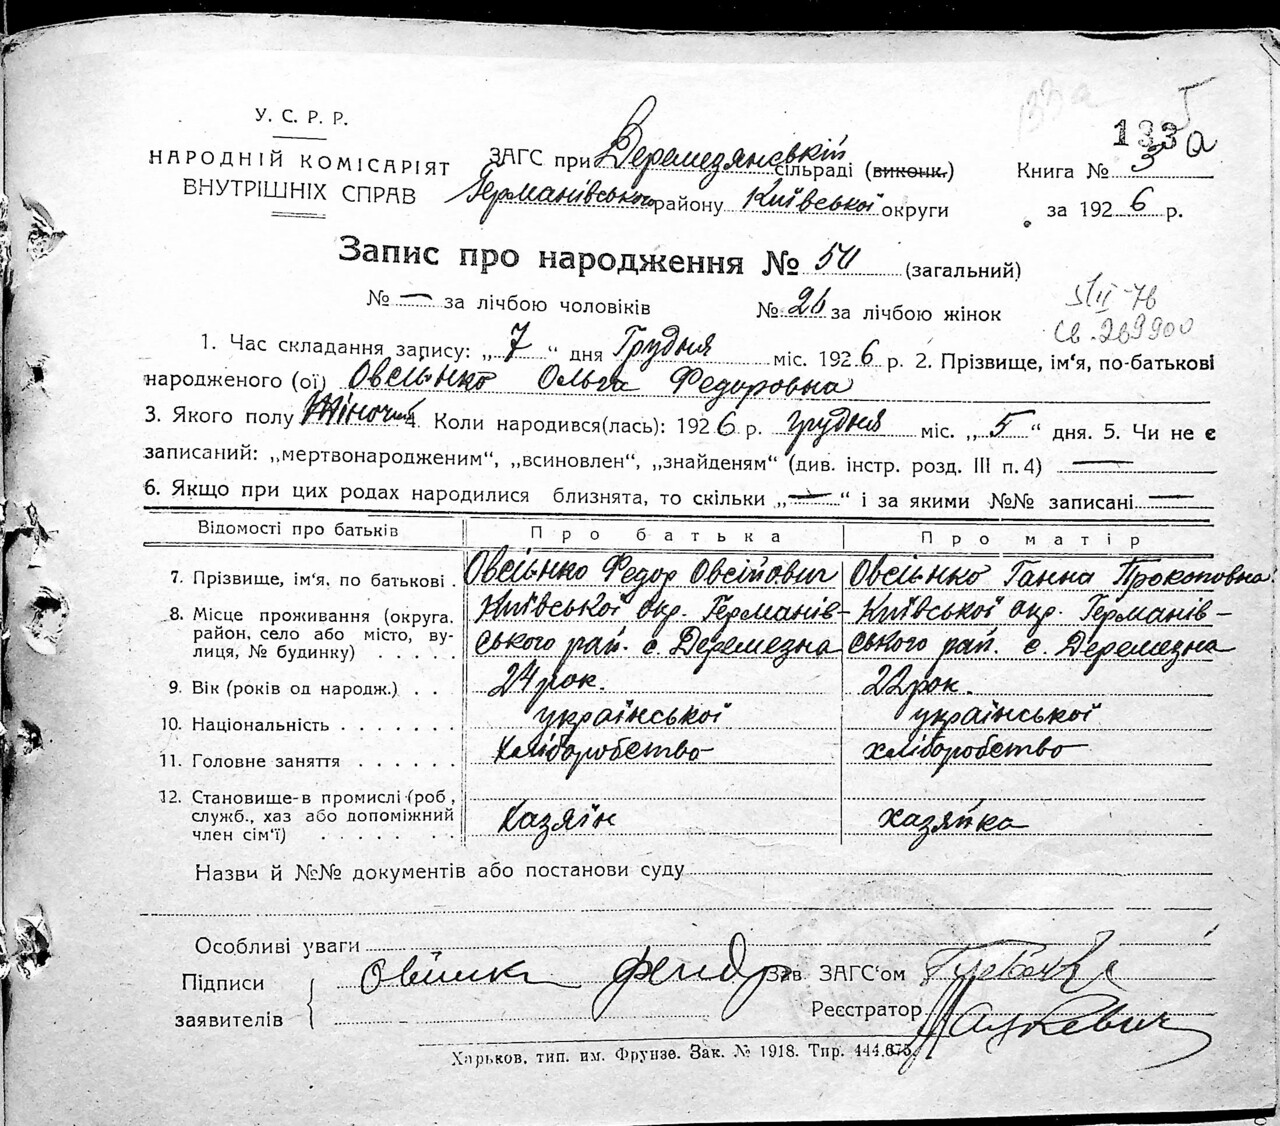 133а
1335а
У. С. Р. Р.
НАРОДНІЙ КОМІСАРІЯТ
ВНУТРІШНІХ СПРАВ
ЗАГС при Деремезянській сільраді (виконк.)
Германівського району Київської округи
Книга № 3
за 1926 р.
Запис про народження № 50 (загальний)
№ — за лічбою чоловіків № 26 за лічбою жінок
5/II-76
св. 269900
1. Час складання запису: „7“ дня Грудня міс. 1926 р. 2. Прізвище, ім‘я, по-батькові
народженого (ої) Овсієнко Ольга Федоровна
3. Якого полу Жіночий 4. Коли народився(лась): 1926 р. грудня міс. „5“ дня. 5. Чи не є
записаний: „мертвонародженим“, „всиновлен“, „знайденям“ (див. інстр. розд. III п. 4) —
6. Якщо при цих родах народилися близнята, то скільки „—“ і за якими №№ записані —
Відомості про батьків Про батька Про матір
7. Прізвище, ім‘я, по батькові . Овсієнко Федор Овсійович Овсієнко Ганна Прокоповна
8. Місце проживання (округа, Київської окр. Германів- Київської окр. Германів-
район, село або місто, ву- ського рай. с. Деремезна ського рай. с. Деремезна
лиця, № будинку) . . . . .
9. Вік (років од народж.) . . 24 рок. 22 рок.
10. Національність . . . . . . . української української
11. Головне заняття . . . . . . хліборобство хліборобство
12. Становище в промислі (роб,
служб., хаз або допоміжний Хазяїн хазяйка
член сім‘ї) . . . . . .
Назви й №№ документів або постанови суду
Особливі уваги
Підписи
заявителів
Зав ЗАГС‘ом
Реєстратор
Харьков, тип. им. Фрунзе. Зак. № 1918. Тир. 444.675.